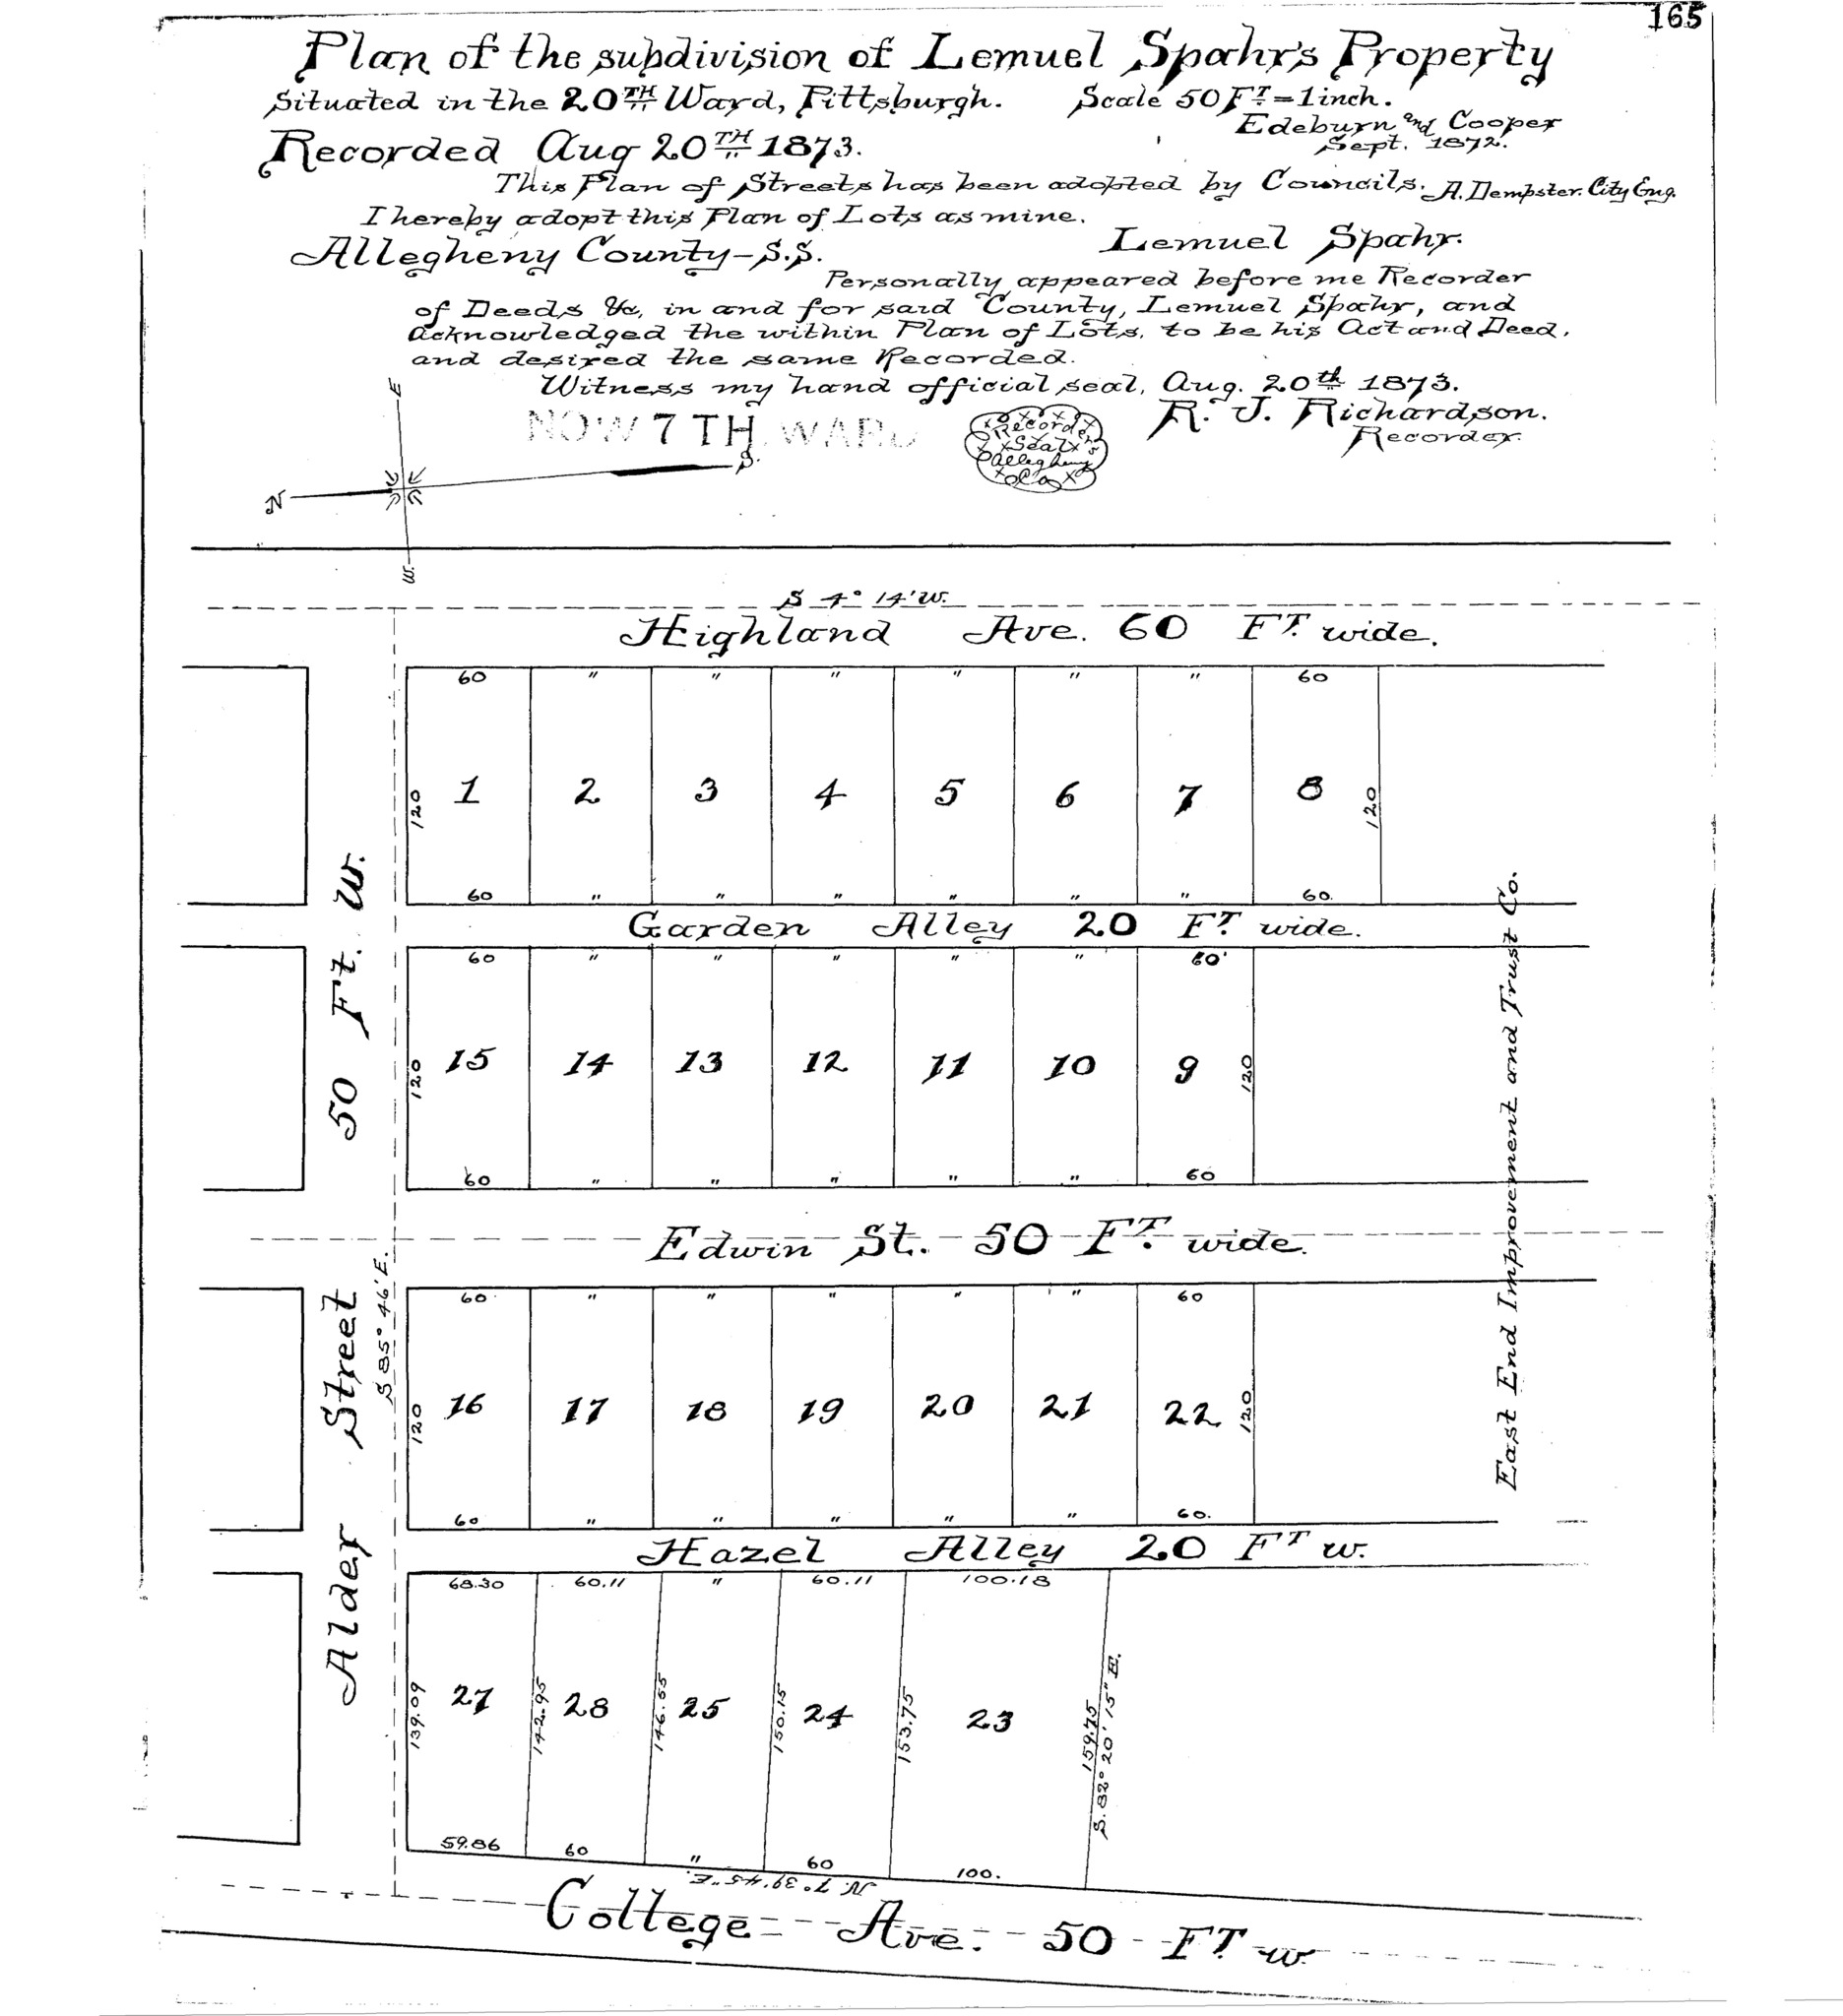 165
Plan of the subdivision of Lemuel Spahr's Property
Situated in the 20TH Ward, Pittsburgh. Scale 50 FT = 1 inch.
Edeburn and Cooper
Sept. 1872.
Recorded Aug 20TH 1873.
This Plan of Streets has been adopted by Councils. A. Dempster. City Eng.
I hereby adopt this Plan of Lots as mine.
Lemuel Spahr.
Allegheny County – S.S.
Personally appeared before me Recorder
of Deeds &c, in and for said County, Lemuel Spahr, and
acknowledged the within Plan of Lots, to be his Act and Deed,
and desired the same Recorded.
Witness my hand official seal, Aug. 20th 1873.
R. J. Richardson.
Recorder.
NOW 7TH WARD
Recorder's
Seal
Allegheny
Co
E
N
S.
W.
S 4° 14' W.
Highland Ave. 60 FT. wide.
60 " " " " " " 60
1 2 3 4 5 6 7 8
120 120
60 " " " " " " 60.
Garden Alley 20 FT. wide.
60 " " " " " 60'
15 14 13 12 11 10 9
120 120
60 " " " " " 60
Edwin St. 50 FT. wide.
60 " " " " " 60
16 17 18 19 20 21 22
120 120
60 " " " " " 60.
Hazel Alley 20 FT w.
68.30 60.11 " 60.11 100.18
27 28 25 24 23
139.09 142.95 146.55 150.15 153.75 159.75
S. 82° 20' 15" E.
59.86 60 " 60 100.
N. 7° 39' 45" E.
College Ave. 50 FT. w.
Alder Street 50 Ft. W.
S 85° 46' E.
East End Improvement and Trust Co.